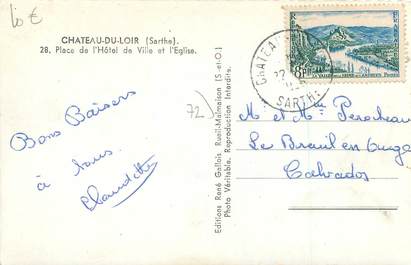 10 €
CHATEAU-DU-LOIR (Sarthe).
28, Place de l'Hôtel de Ville et l'Eglise.
Bons Baisers
à tous
Claudette
72
Editions René Gallois Rueil-Malmaison (S.-et-O.)
Photo Véritable. Reproduction Interdite.
CHATEAU
22
SARTHE
8F
LA VALLÉE DE LA SEINE AUX ANDELYS
M et Mme
Le Breuil en Auge
Calvados